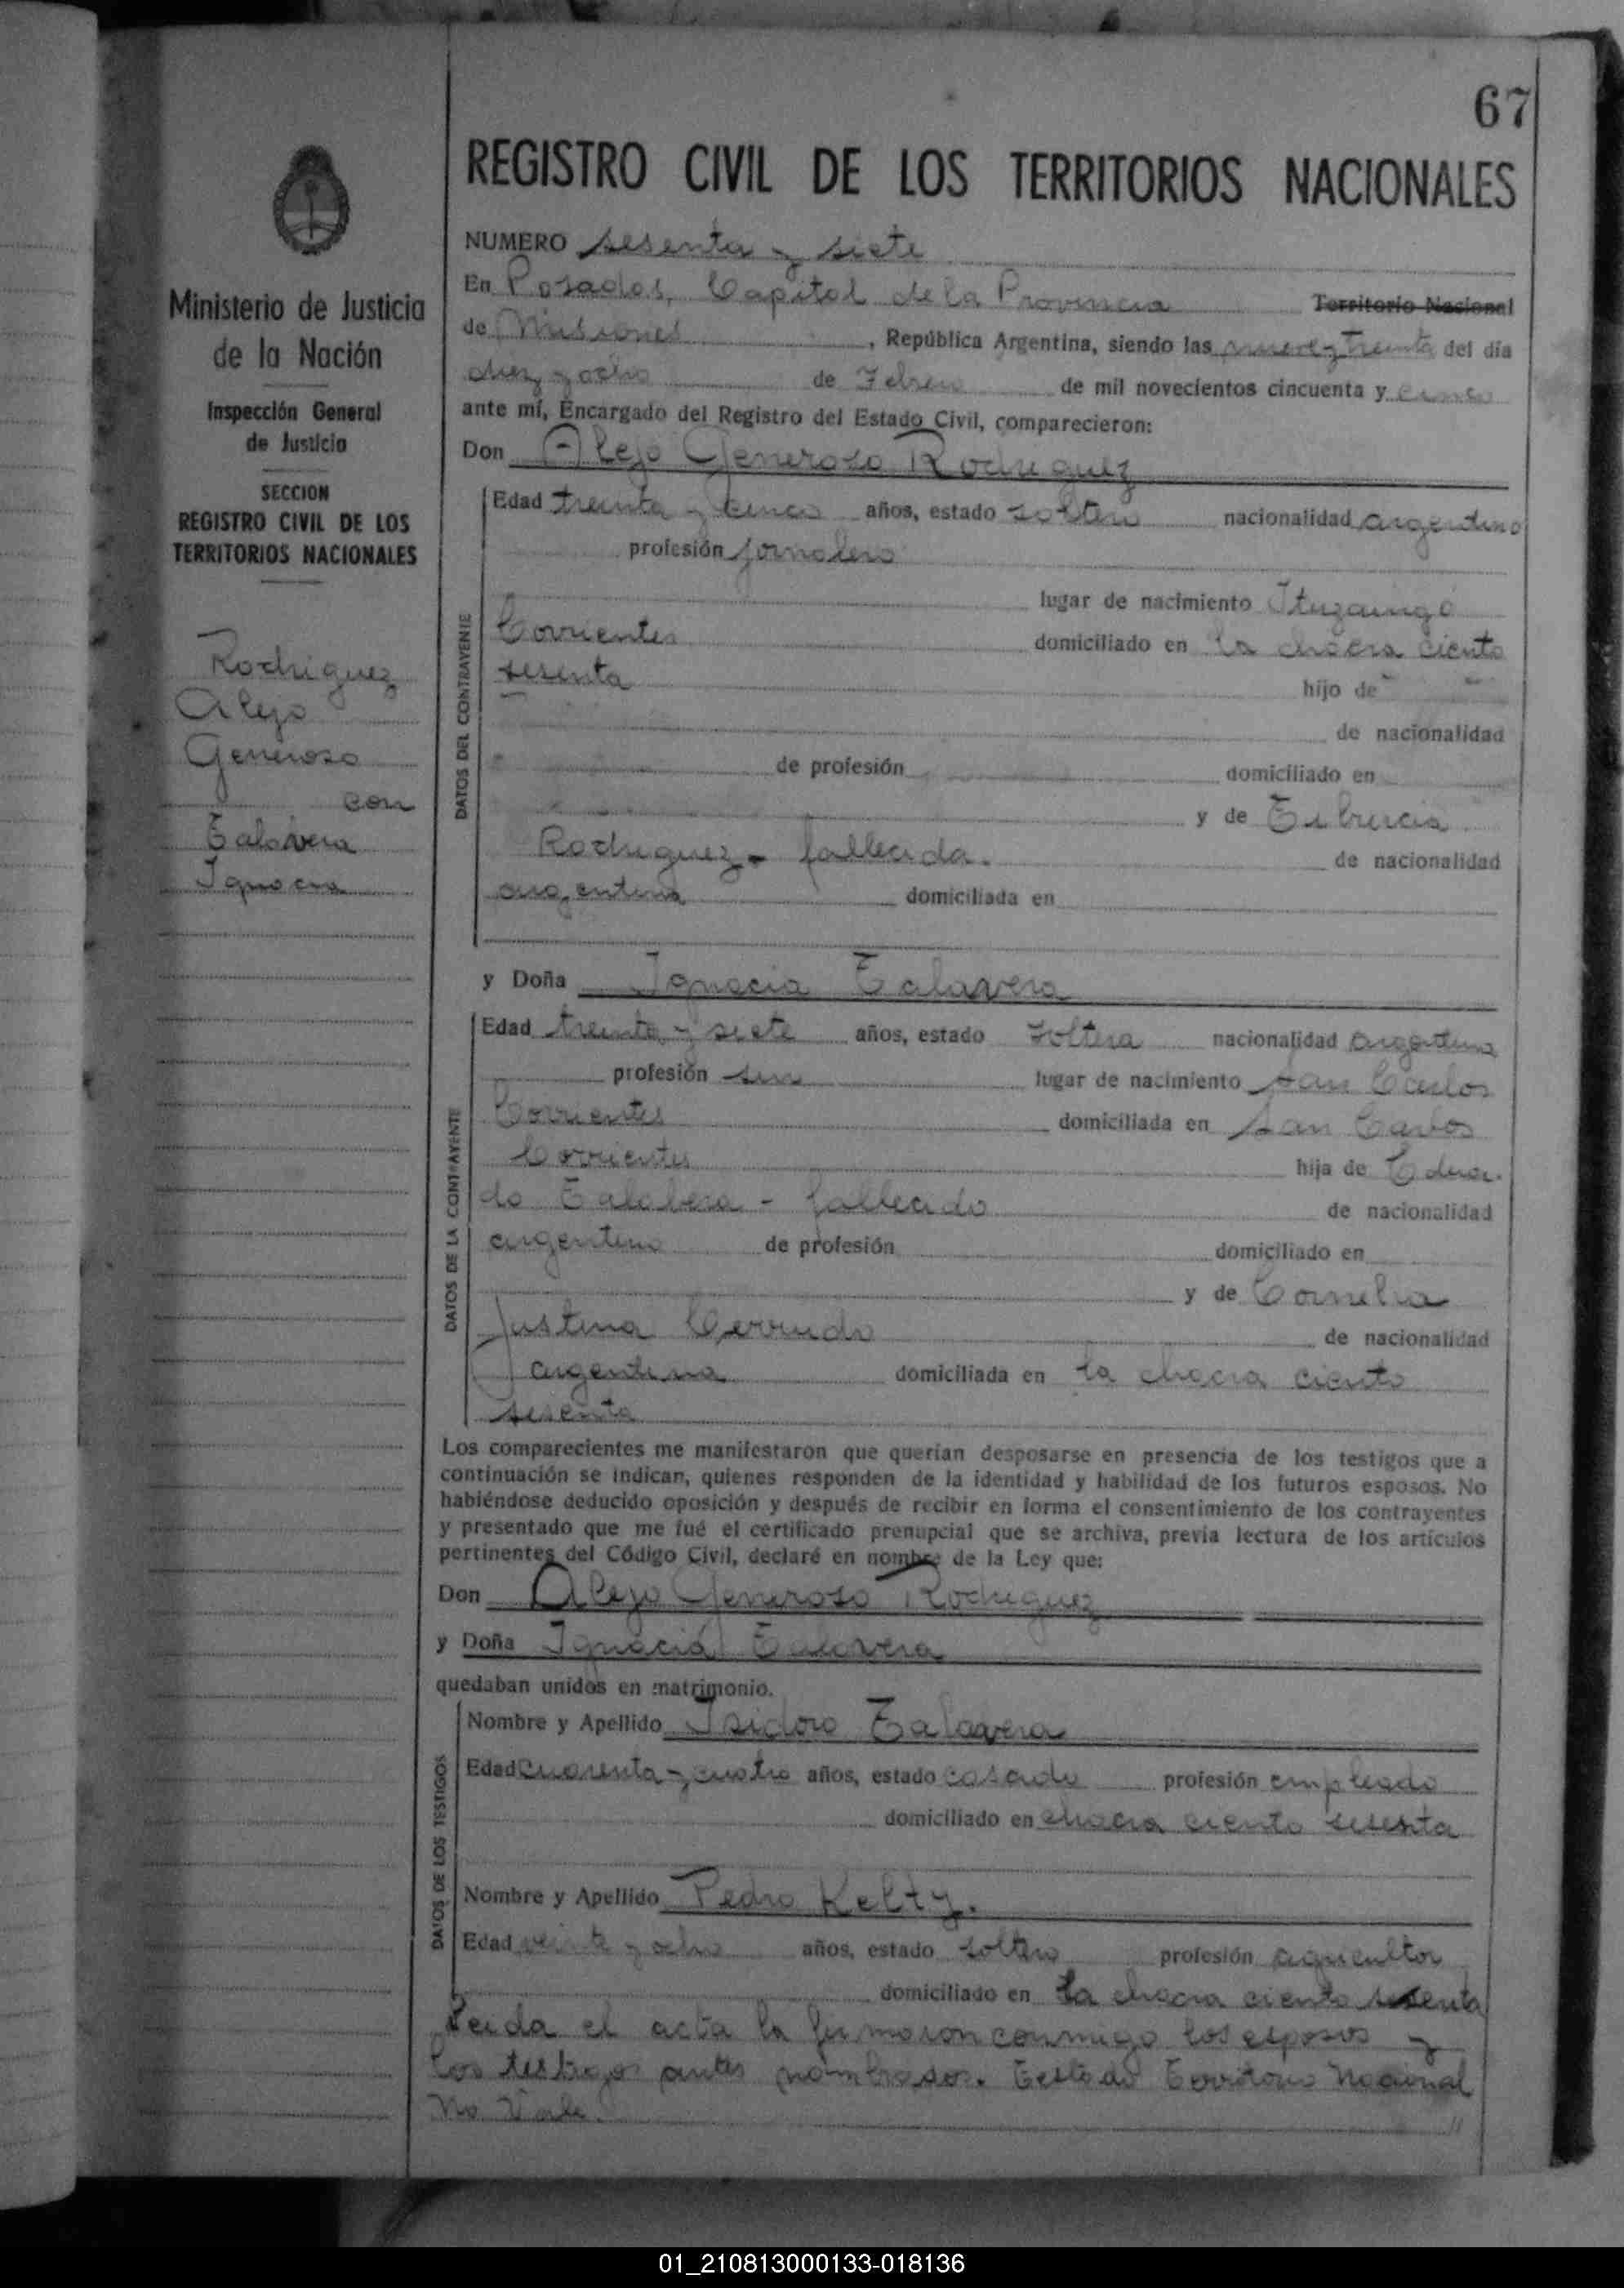 67
REGISTRO CIVIL DE LOS TERRITORIOS NACIONALES
Ministerio de Justicia
de la Nación
Inspección General
de Justicia
SECCION
REGISTRO CIVIL DE LOS
TERRITORIOS NACIONALES
Rodriguez
Alejo
Generoso
con
Talavera
Ignacia
NUMERO sesenta y siete
En Posadas, Capital de la Provincia Territorio Nacional
de Misiones, República Argentina, siendo las nueve y treinta del día
diez y ocho de Febrero de mil novecientos cincuenta y cinco
ante mí, Encargado del Registro del Estado Civil, comparecieron:
Don Alejo Generoso Rodriguez
DATOS DEL CONTRAYENTE
Edad treinta y cinco años, estado soltero nacionalidad argentino
profesión jornalero
lugar de nacimiento Ituzaingó
Corrientes domiciliado en la chacra ciento
sesenta hijo de
de nacionalidad
de profesión domiciliado en
y de Tiburcia
Rodriguez - fallecida. de nacionalidad
argentina domiciliada en
y Doña Ignacia Talavera
DATOS DE LA CONTRAYENTE
Edad treinta y siete años, estado soltera nacionalidad argentina
profesión sin lugar de nacimiento San Carlos
Corrientes domiciliada en San Carlos
Corrientes hija de Eduar-
do Talabera - fallecido de nacionalidad
argentino de profesión domiciliado en
y de Cornelia
Justina de nacionalidad
argentina domiciliada en la chacra ciento
sesenta
Los comparecientes me manifestaron que querían desposarse en presencia de los testigos que a
continuación se indican, quienes responden de la identidad y habilidad de los futuros esposos. No
habiéndose deducido oposición y después de recibir en forma el consentimiento de los contrayentes
y presentado que me fué el certificado prenupcial que se archiva, previa lectura de los artículos
pertinentes del Código Civil, declaré en nombre de la Ley que:
Don Alejo Generoso Rodriguez
y Doña Ignacia Talavera
quedaban unidos en matrimonio.
DATOS DE LOS TESTIGOS
Nombre y Apellido Isidoro Talavera
Edad cuarenta y cuatro años, estado casado profesión empleado
domiciliado en chacra ciento sesenta
Nombre y Apellido Pedro Kelty.
Edad veinte y ocho años, estado soltero profesión agricultor
domiciliado en la chacra ciento sesenta
Leida el acta la firmaron conmigo los esposos y
los testigos antes nombrados. Testado Territorio Nacional
No Vale.
01_210813000133-018136